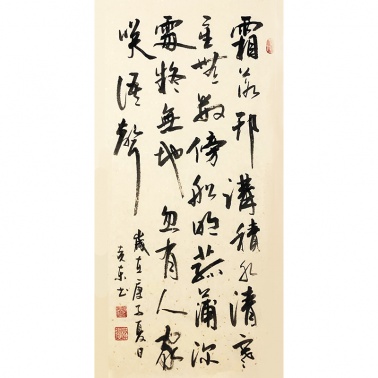 霜落邗溝積水清寒
星無數傍船明菰蒲深
處疑無地忽有人家
咲語聲
歲在庚子夏日
東书